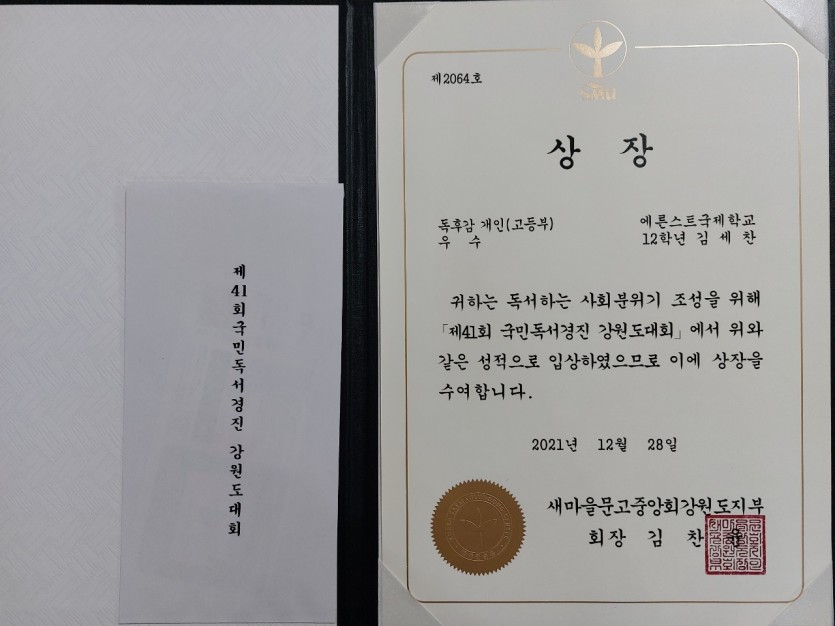 제41회 국민독서경진 강원도대회
SMU
제2064호
상 장
독후감 개인(고등부)
우 수
에른스트국제학교
12학년 김 세 찬
귀하는 독서하는 사회분위기 조성을 위해
「제41회 국민독서경진 강원도대회」에서 위와
같은 성적으로 입상하였으므로 이에 상장을
수여합니다.
2021년 12월 28일
새마을문고중앙회강원도지부
회장 김 찬